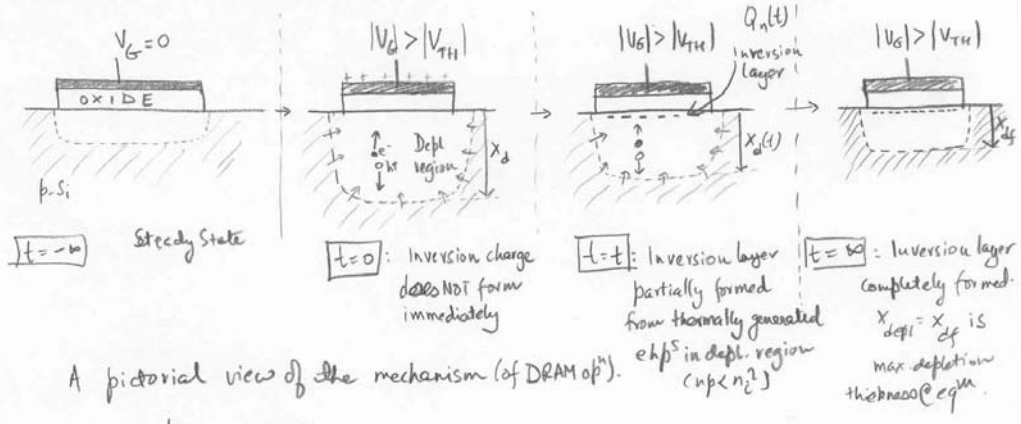 V_G = 0
OXIDE
p-Si
t = -∞
Steady State
|V_G| > |V_TH|
+ + + + + +
e-
h+
Depl
region
x_d
t=0 : Inversion charge
does NOT form
immediately
Q_n(t)
|V_G| > |V_TH|
inversion
layer
x_d(t)
t=t : Inversion layer
partially formed
from thermally generated
ehp^s in depl. region
(np < n_i^2)
|V_G| > |V_TH|
x_df
t = ∞ : Inversion layer
completely formed.
x_depl = x_df is
max. depletion
thickness @ eq^m.
A pictorial view of the mechanism (of DRAM op^n).